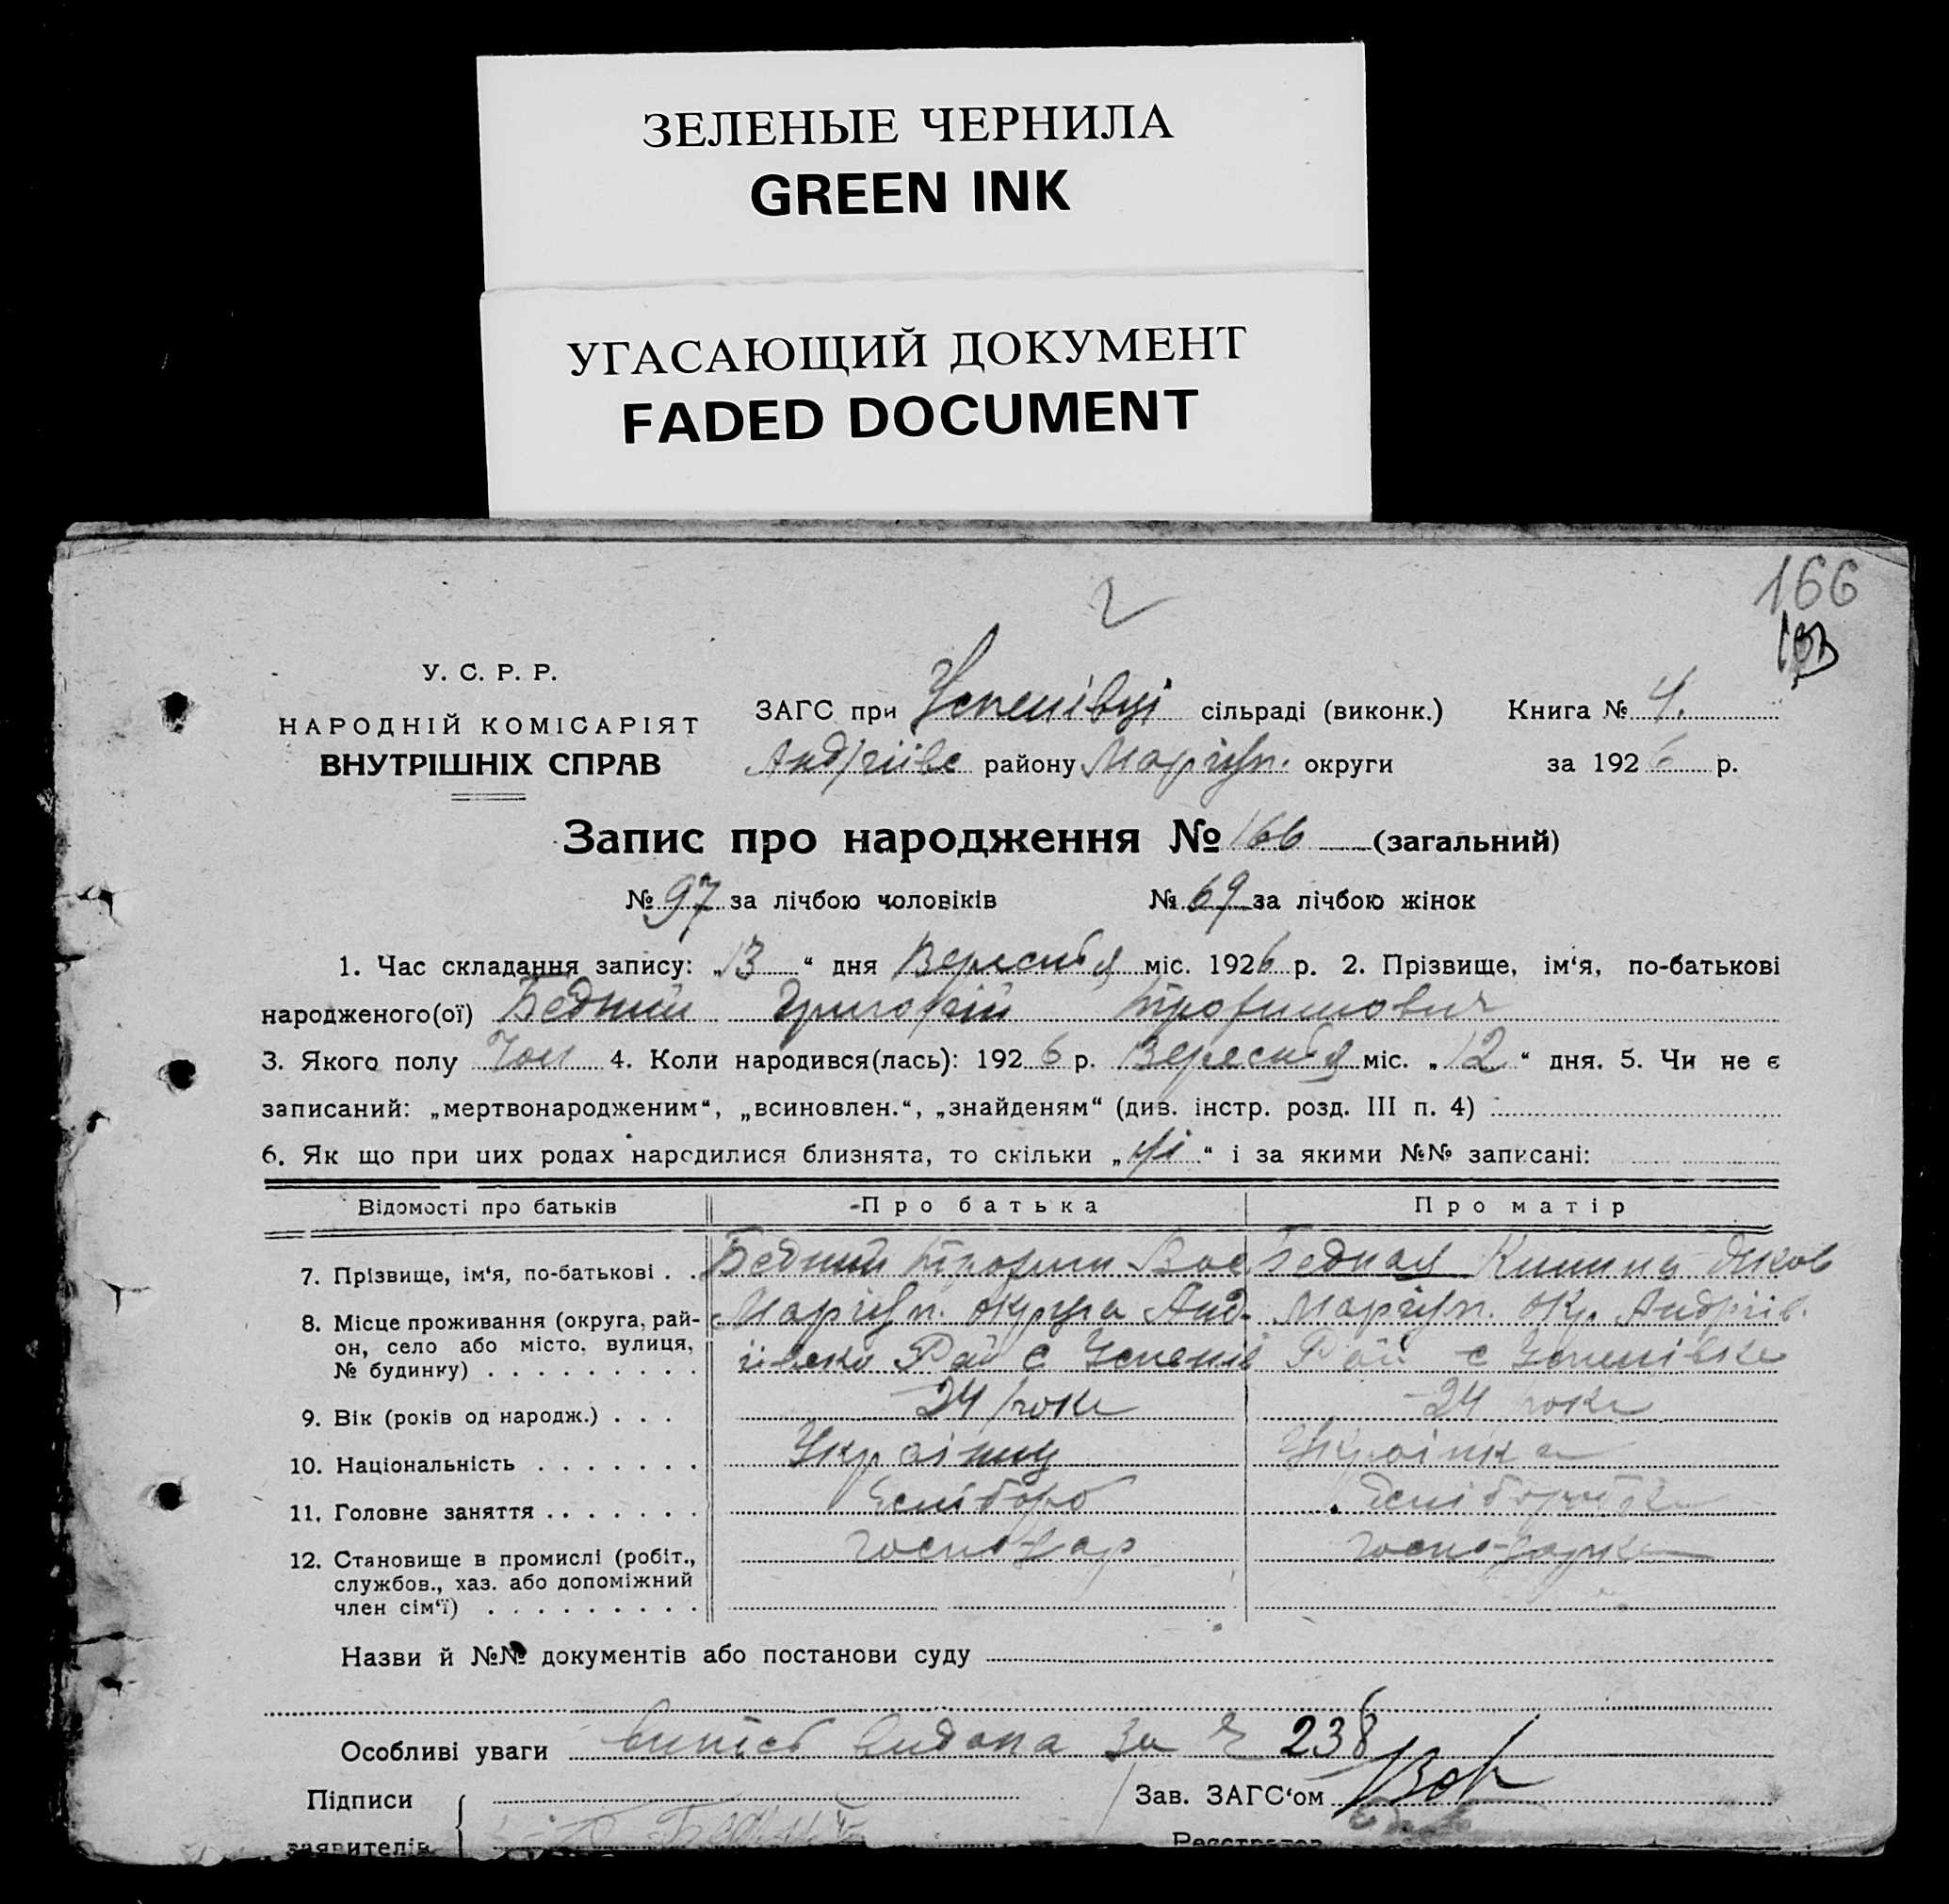 ЗЕЛЕНЫЕ ЧЕРНИЛА
GREEN INK
УГАСАЮЩИЙ ДОКУМЕНТ
FADED DOCUMENT
166
У. С. Р. Р.
НАРОДНІЙ КОМІСАРІЯТ
ВНУТРІШНІХ СПРАВ
ЗАГС при Успенівці сільраді (виконк.) Книга № 4.
Андріївс району Маріуп. округи за 1926 р.
Запис про народження № 166 (загальний)
№ 97 за лічбою чоловіків № 69 за лічбою жінок
1. Час складання запису: „13“ дня Вересня міс. 1926 р. 2. Прізвище, ім‘я, по-батькові
народженого(ої) Бедний Григорій Трофимович
3. Якого полу Чол 4. Коли народився(лась): 1926 р. Вересня міс. „12“ дня. 5. Чи не є
записаний: „мертвонародженим“, „всиновлен.“, „знайденям“ (див. інстр. розд. III п. 4)
6. Як що при цих родах народилися близнята, то скільки „ні“ і за якими №№ записані:
Відомості про батьків Про батька Про матір
7. Прізвище, ім‘я, по-батькові . . Бедний Трофим Вас Бедная Яков
8. Місце проживання (округа, рай- Маріуп. округа Анд- Маріуп. Окр. Андріїв.
он, село або місто, вулиця, ріївско Рай с Успенів Рай с Успенівка
№ будинку) . . . . . . . . .
9. Вік (років од народж.) . . . 24 роки 24 роки
10. Національність . . . . . . . Українц Українка
11. Головне заняття . . . . . . . Хлібороб Хліборобка
12. Становище в промислі (робіт., господар господарка
службов., хаз. або допоміжний
член сім‘ї) . . . . . . . . .
Назви й №№ документів або постанови суду
Особливі уваги випісь видана за № 238
Підписи Зав. ЗАГС‘ом
заявителів Бедний Реєстратор